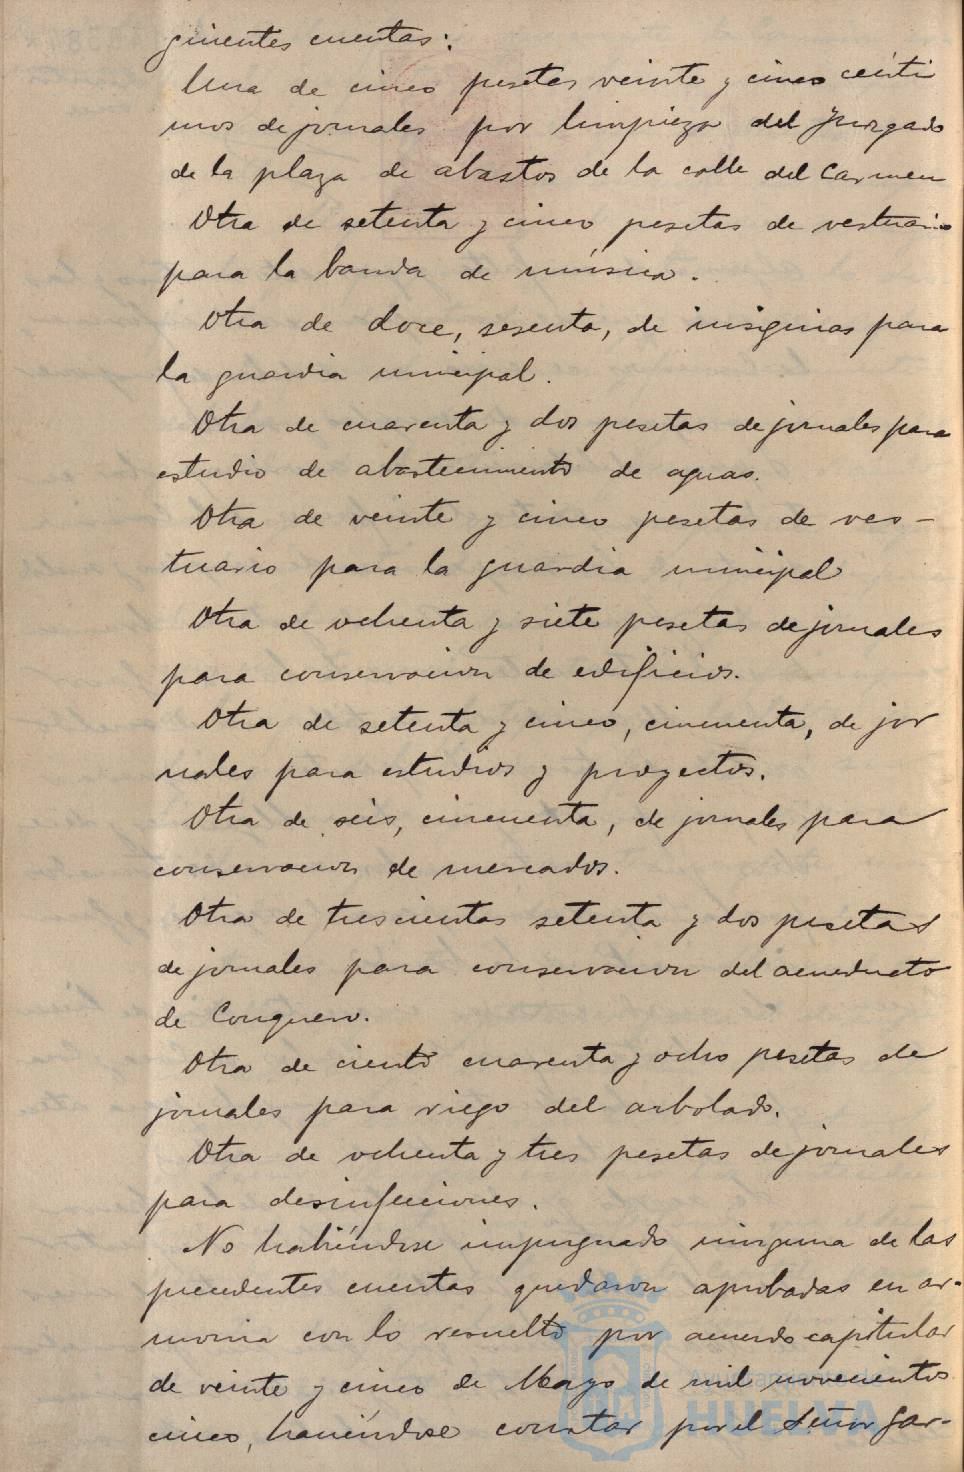 guientes cuentas:
Una de cinco pesetas veinte y cinco cénti
mos de jornales por limpieza del Juzgado
de la plaza de abastos de la calle del Carmen
Otra de setenta y cinco pesetas de vestuario
para la banda de música.
Otra de doce, sesenta, de insignias para
la guardia municipal.
Otra de cuarenta y dos pesetas de jornales para
estudio de abastecimiento de aguas.
Otra de veinte y cinco pesetas de ves-
tuario para la guardia municipal
Otra de ochenta y siete pesetas de jornales
para conservacion de edificios.
Otra de setenta y cinco, cincuenta, de jor
nales para estudios y proyectos.
Otra de seis, cincuenta, de jornales para
conservacion de mercados.
Otra de trescientas setenta y dos pesetas
de jornales para conservacion del acueducto
de Conquero.
Otra de ciento cuarenta y ocho pesetas de
jornales para riego del arbolado.
Otra de ochenta y tres pesetas de jornales
para desinfecciones.
No habiéndose impugnado ninguna de las
precedentes cuentas quedaron aprobadas en ar-
monia con lo resuelto por acuerdo capitular
de veinte y cinco de Mayo de mil novecientos
cinco, haciéndose constar por el Señor Gar-
HUELVA